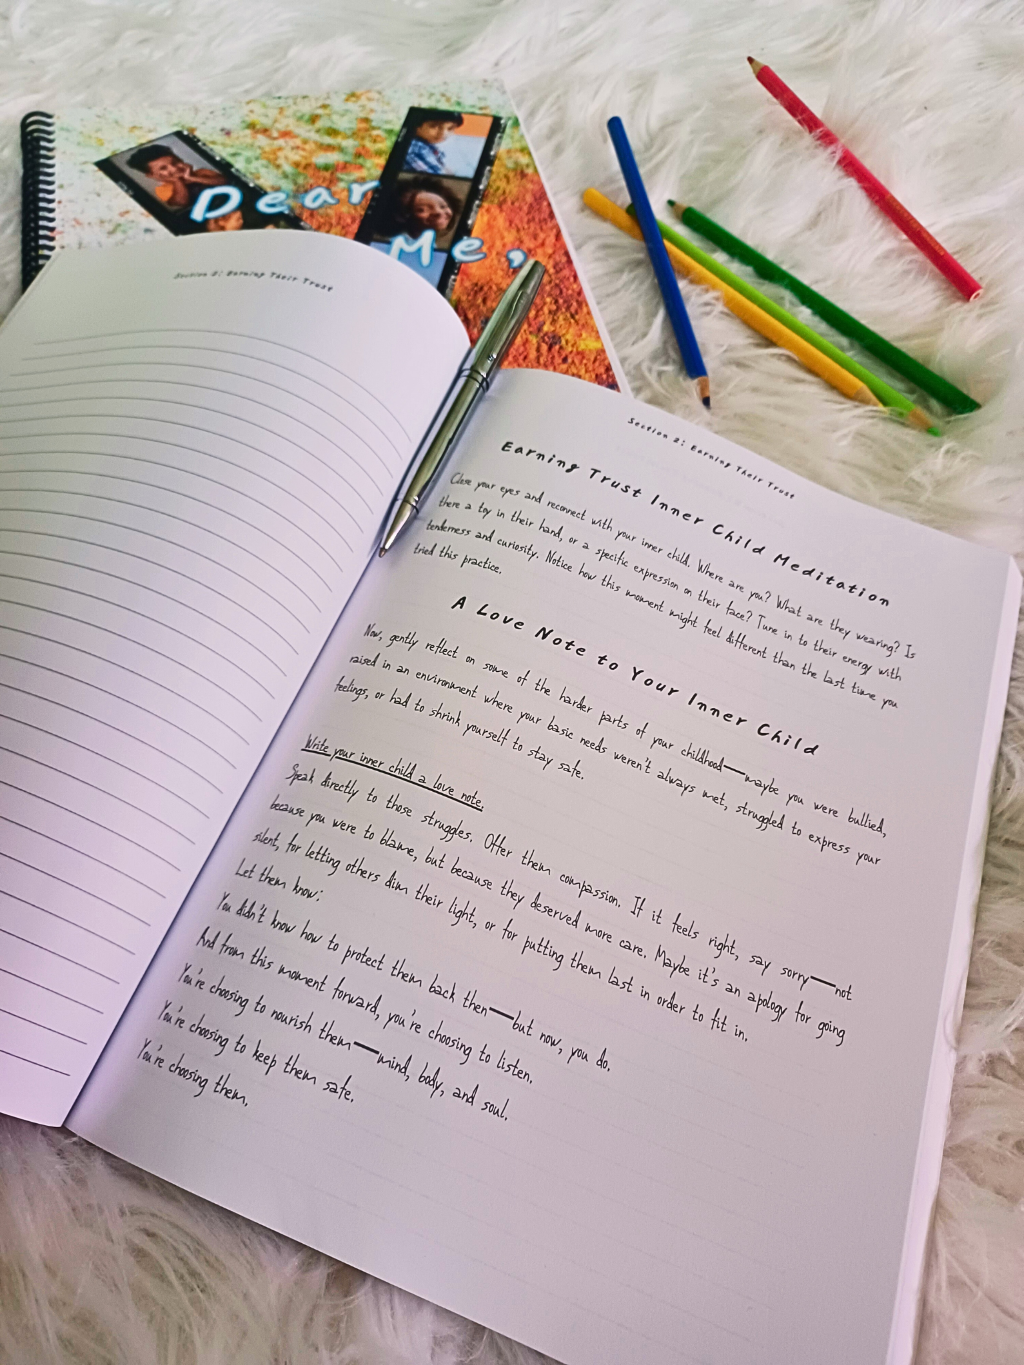 Dear
Me,
Section 2: Earning Their Trust
Section 2: Earning Their Trust
Earning Trust Inner Child Meditation
Close your eyes and reconnect with your inner child. Where are you? What are they wearing? Is
there a toy in their hand, or a specific expression on their face? Tune in to their energy with
tenderness and curiosity. Notice how this moment might feel different than the last time you
tried this practice.
A Love Note to Your Inner Child
Now, gently reflect on some of the harder parts of your childhood—maybe you were bullied,
raised in an environment where your basic needs weren't always met, struggled to express your
feelings, or had to shrink yourself to stay safe.
Write your inner child a love note.
Speak directly to those struggles. Offer them compassion. If it feels right, say sorry—not
because you were to blame, but because they deserved more care. Maybe it's an apology for going
silent, for letting others dim their light, or for putting them last in order to fit in.
Let them know:
You didn't know how to protect them back then—but now, you do.
And from this moment forward, you're choosing to listen.
You're choosing to nourish them—mind, body, and soul.
You're choosing to keep them safe.
You're choosing them.